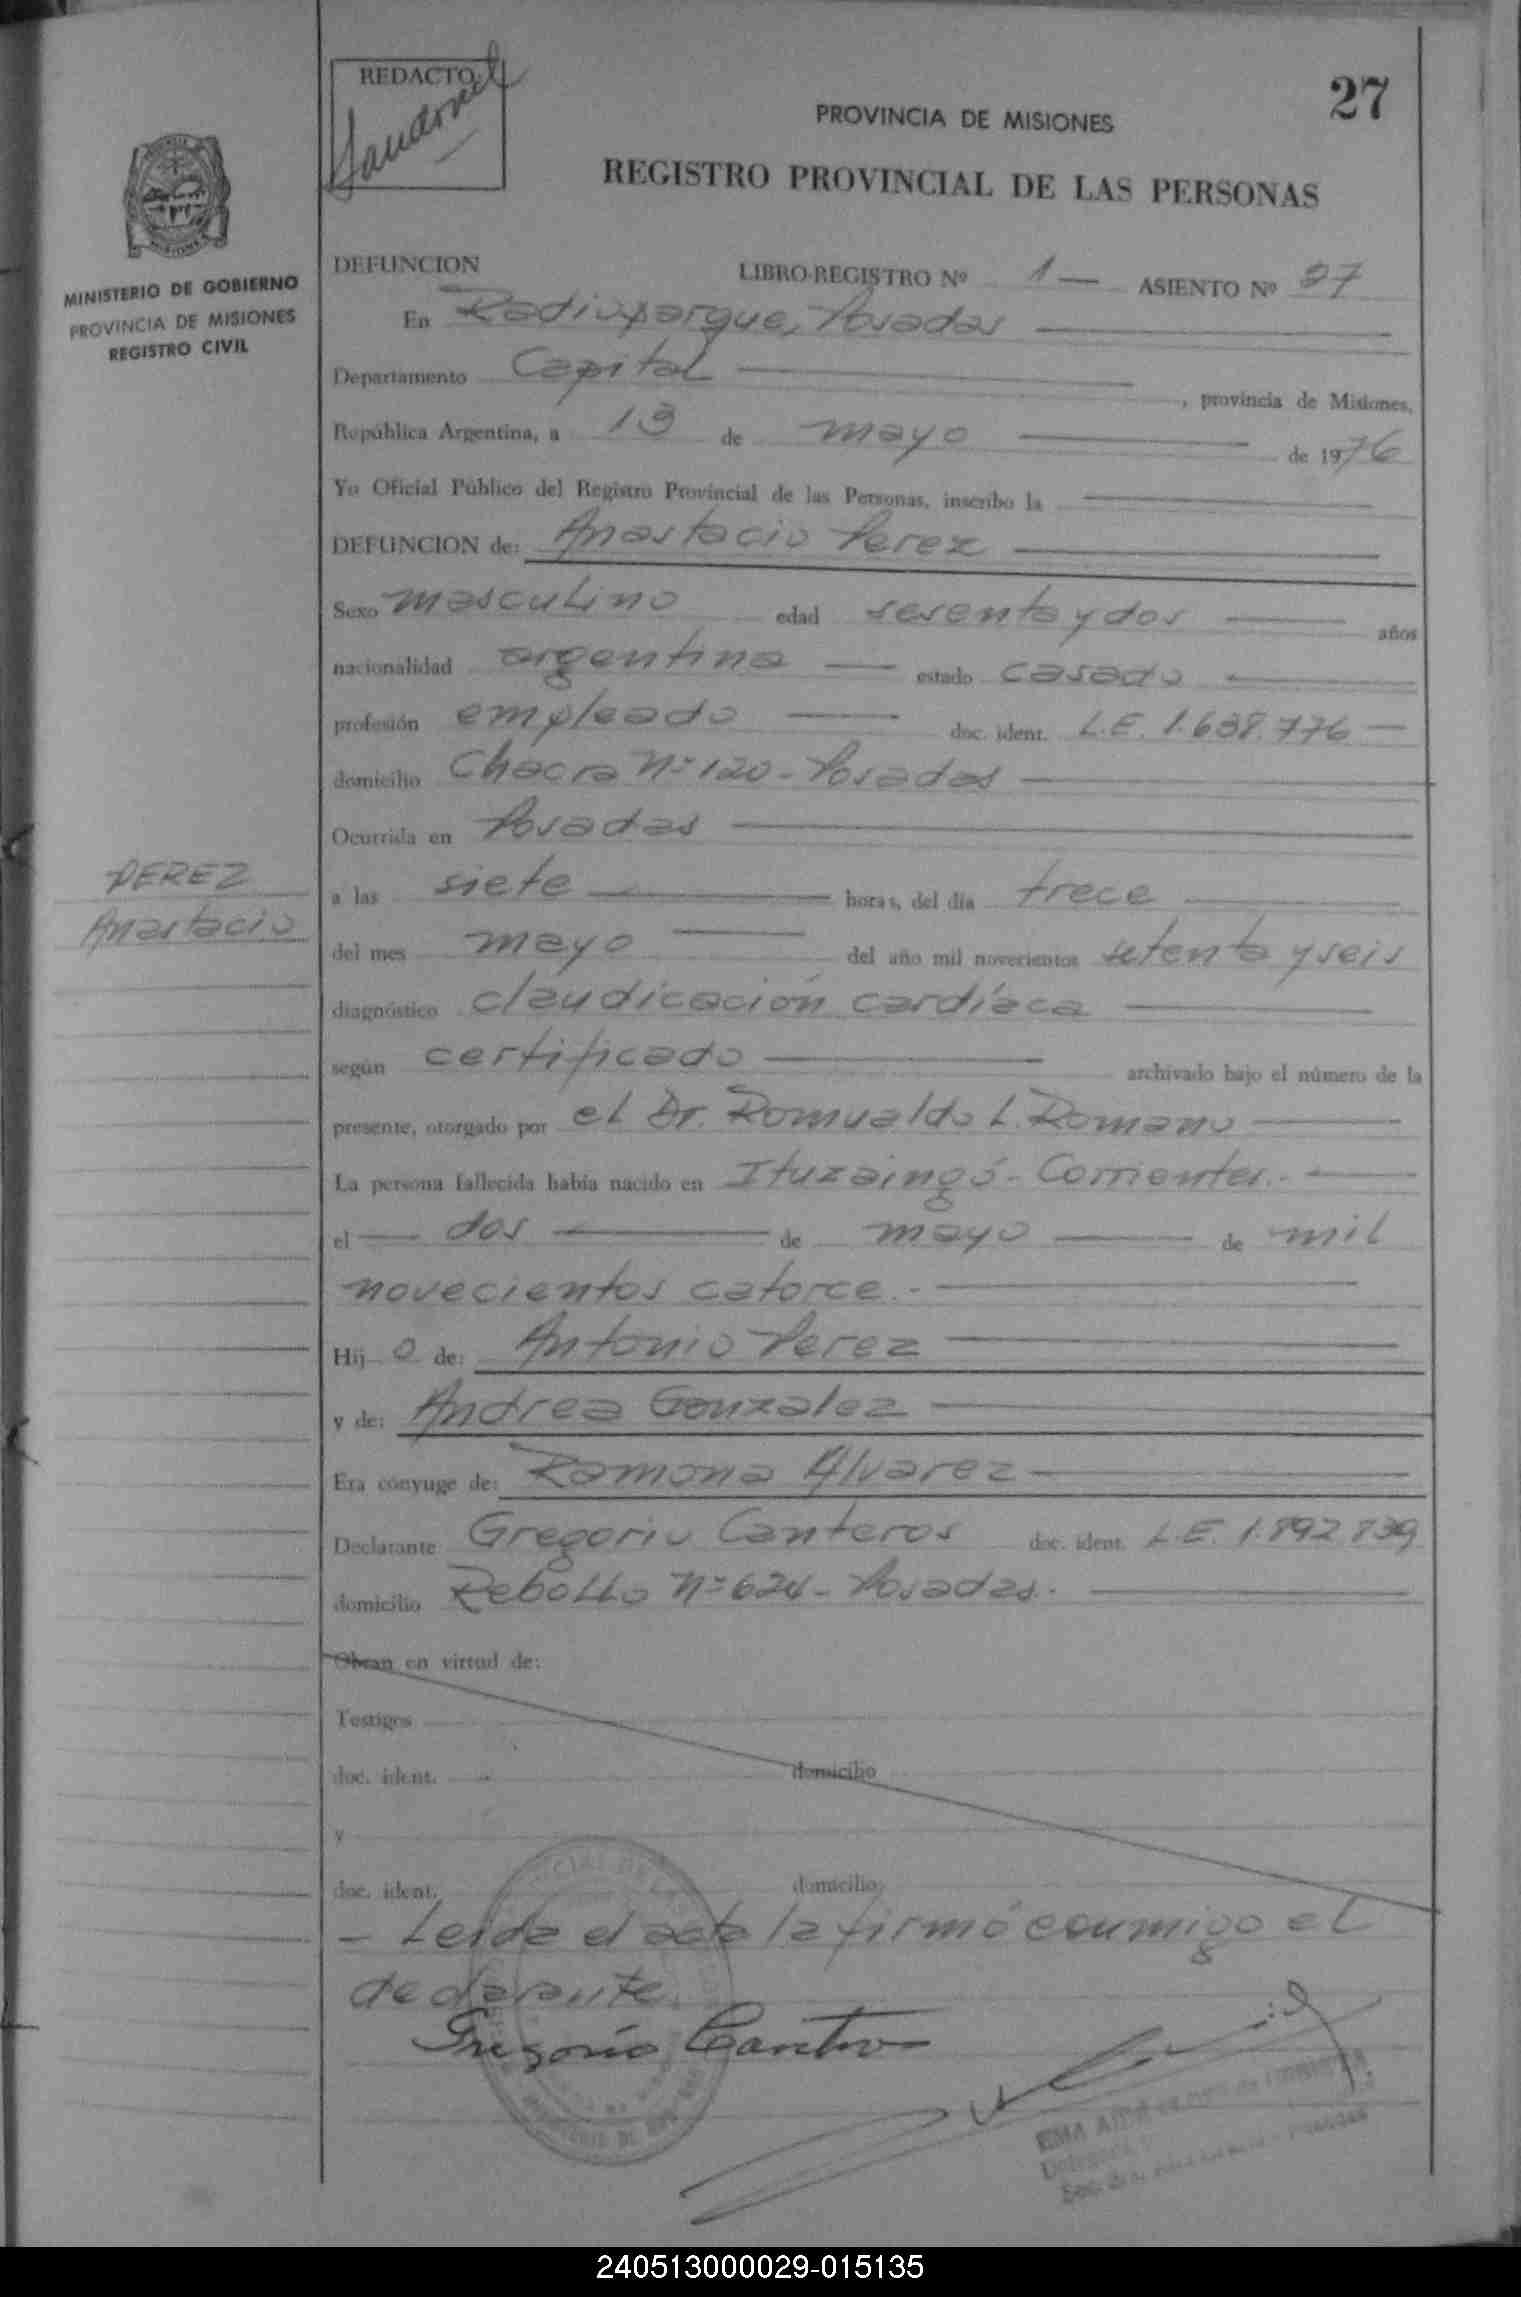 REDACTO
27
PROVINCIA DE MISIONES
REGISTRO PROVINCIAL DE LAS PERSONAS
MINISTERIO DE GOBIERNO
PROVINCIA DE MISIONES
REGISTRO CIVIL
DEFUNCION LIBRO-REGISTRO Nº 1 — ASIENTO Nº 27
En Radioparque, Posadas
Departamento Capital , provincia de Misiones,
República Argentina, a 13 de mayo de 1976
Yo Oficial Público del Registro Provincial de las Personas, inscribo la
DEFUNCION de: Anastacio Perez
Sexo masculino edad sesenta y dos años
nacionalidad argentina estado casado
profesión empleado doc. ident. L.E. 1.638.776
domicilio Chacra Nº 120 - Posadas
Ocurrida en Posadas
PEREZ
Anastacio
a las siete horas, del día trece
del mes mayo del año mil novecientos setenta y seis
diagnóstico claudicación cardíaca
según certificado archivado bajo el número de la
presente, otorgado por el Dr. Romualdo L. Romano
La persona fallecida había nacido en Ituzaingó - Corrientes.-
el dos de mayo de mil
novecientos catorce.-
Hij o de: Antonio Perez
y de: Andrea Gonzalez
Era cónyuge de: Ramona Alvarez
Declarante Gregorio Canteros doc. ident. L.E. 1.892.839
domicilio Rebollo Nº 624 - Posadas.
Obran en virtud de:
Testigos
doc. ident. domicilio
y
doc. ident. domicilio
- Leida el acta la firmó conmigo el
declarante.
Gregorio Cantero
240513000029-015135